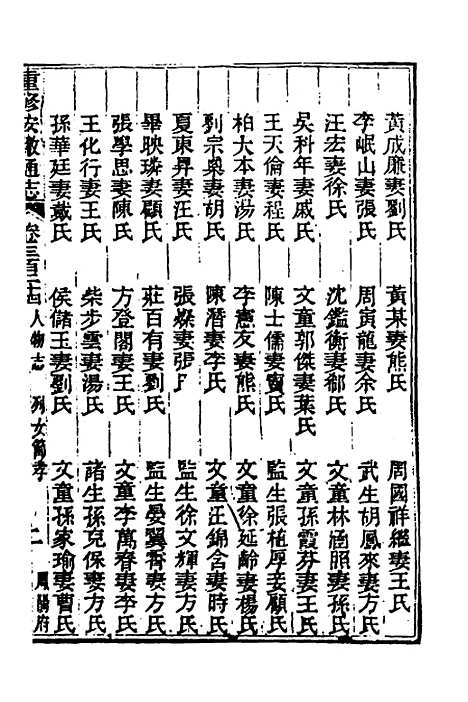 黃成廉妻劉氏　黃某妻熊氏　周國祥繼妻王氏
李岷山妻張氏　周寅龍妻余氏　武生胡鳳來妻方氏
汪宏妻徐氏　沈鑑衡妻郁氏　文童林涵照妻孫氏
吳科年妻戚氏　文童郭傑妻葉氏　文童孫霞芬妻王氏
王天倫妻程氏　陳士儒妻賈氏　監生張植厚妾顧氏
柏大本妻湯氏　李憲友妻熊氏　文童徐延齡妻楊氏
劉宗奐妻胡氏　陳潛妻李氏　文童汪錦含妻時氏
夏東昇妻汪氏　張燦妻張氏　監生徐文輝妻方氏
畢映璘妻顧氏　莊百有妻劉氏　監生晏翼霄妻方氏
張學思妻陳氏　方登閣妻王氏　文童李萬春妻李氏
王化行妻王氏　柴步雲妻湯氏　諸生孫克保妻方氏
孫華廷妻戴氏　侯儲玉妻劉氏　文童孫象瑜妻曹氏
重修安徽通志　卷三百十四　人物志　列女節孝　二　鳳陽府